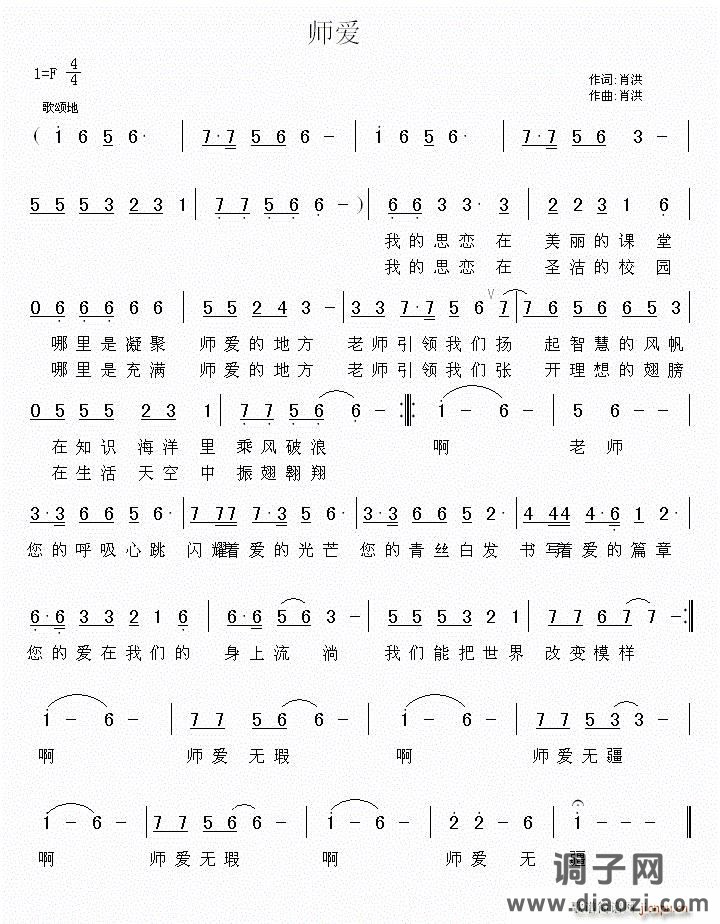 师爱
1=F 4/4
作词:肖洪
作曲:肖洪
歌颂地
( 1 6 5 6· | 7·7 5 6 6 - | 1 6 5 6· | 7·7 5 6 3 - |
5 5 5 3 2 3 1 | 7 7 5 6 6 - ) | 6 6 3 3· 3 | 2 2 3 1 6
我的思恋在 美丽的课堂
我的思恋在 圣洁的校园
0 6 6 6 6 6 | 5 5 2 4 3 - | 3 3 7·7 5 6 7 | 7 6 5 6 6 5 3
哪里是凝聚 师爱的地方 老师引领我们扬 起智慧的风帆
哪里是充满 师爱的地方 老师引领我们张 开理想的翅膀
0 5 5 5 2 3 1 | 7 7 5 6 6 - :||: 1 - 6 - | 5 6 - -
在知识海洋里 乘风破浪 啊 老师
在生活天空中 振翅翱翔
3·3 6 6 5 6· | 7 77 7·3 5 6· | 3·3 6 6 5 2· | 4 44 4·6 1 2·
您的呼吸心跳 闪耀着爱的光芒 您的青丝白发 书写着爱的篇章
6·6 3 3 2 1 6 | 6·6 5 3 3 - | 5 5 5 3 2 1 | 7 7 6 7 7 - :||
您的爱在我们的 身上流淌 我们能把世界 改变模样
1 - 6 - | 7 7 5 6 6 - | 1 - 6 - | 7 7 5 3 3 - |
啊 师爱无瑕 啊 师爱无疆
1 - 6 - | 7 7 5 6 6 - | 1 - 6 - | 2 2 - 6 | 1 - - - ||
啊 师爱无瑕 啊 师爱无疆
调子网
www.diaozi.com